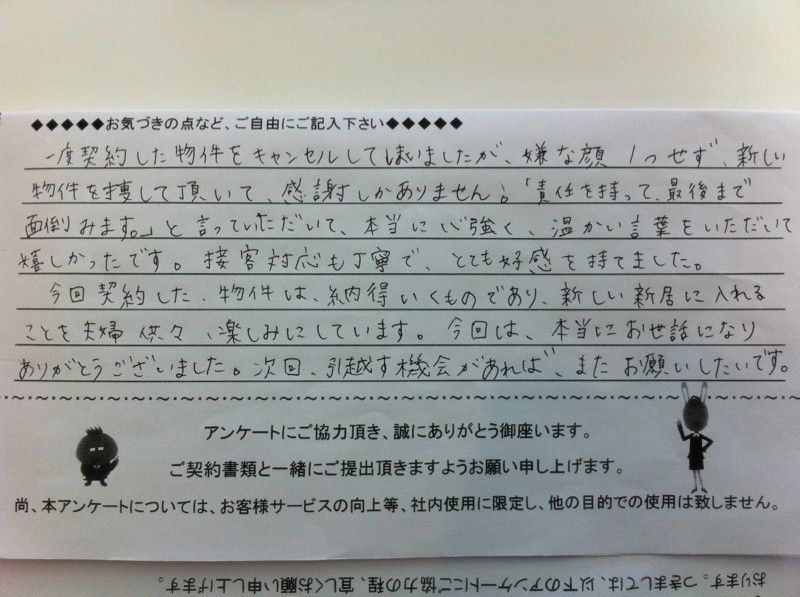 ◆◆◆◆◆お気づきの点など、ご自由にご記入下さい◆◆◆◆◆
一度契約した物件をキャンセルしてしまいましたが、嫌な顔1つせず、新しい
物件を捜して頂いて、感謝しかありません。「責任を持って、最後まで
面倒みます。」と言っていただいて、本当に心強く、温かい言葉をいただいて
嬉しかったです。接客対応も丁寧で、とても好感を持てました。
今回契約した、物件は、納得いくものであり、新しい新居に入れる
ことを夫婦供々、楽しみにしています。今回は、本当にお世話になり
ありがとうございました。次回、引越す機会があれば、またお願いしたいです。
アンケートにご協力頂き、誠にありがとう御座います。
ご契約書類と一緒にご提出頂きますようお願い申し上げます。
尚、本アンケートについては、お客様サービスの向上等、社内使用に限定し、他の目的での使用は致しません。
おります。つきましては、以下のアンケートにご協力の程、宜しくお願い申し上げます。